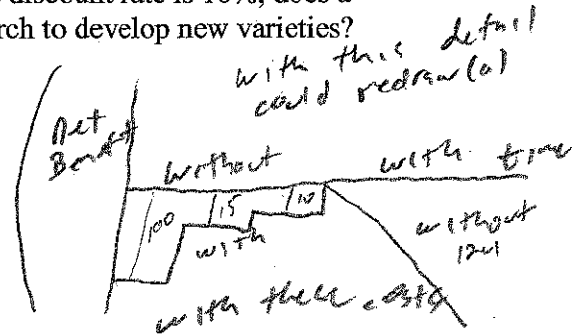 discount rate is 10%, does a
rch to develop new varieties?
with this detail
could redraw (a)
net
Benefit
without
with time
100
15
10
with
without
with these costs